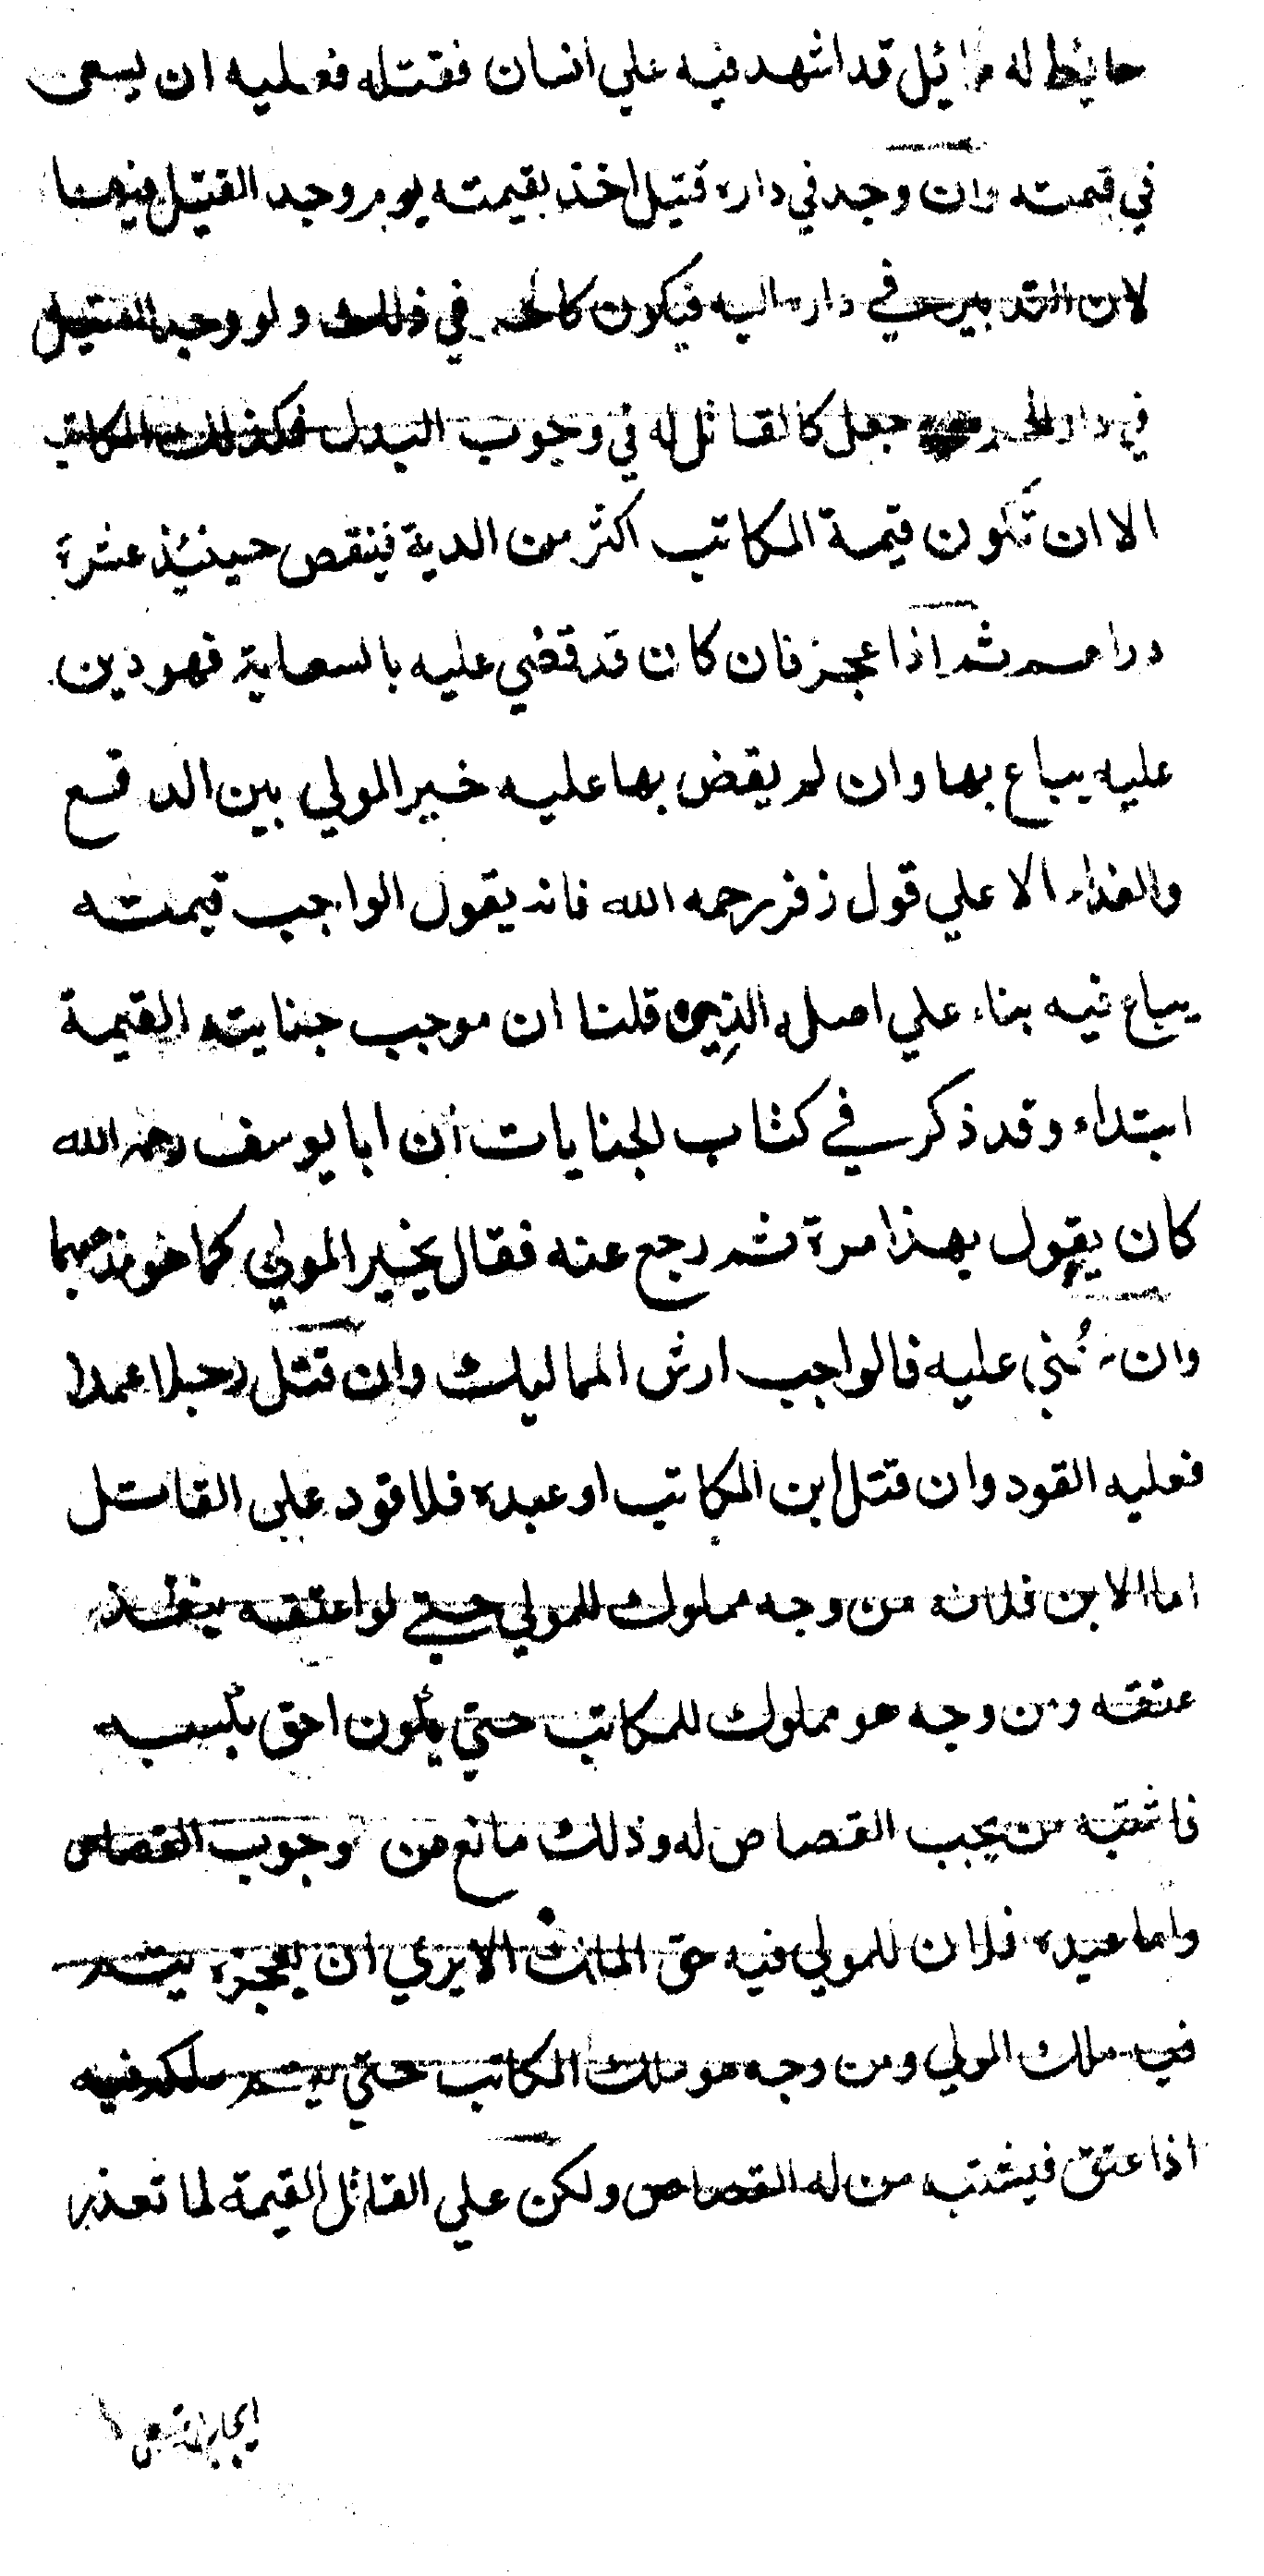 حائط له مائل قد اشهد فيه علي انسان فقتله فعليه ان يسعى
في قيمته وان وجد في داره قتيل اخذ بقيمته يوم وجد القتيل فيها
لان التدبير في داره اليه فيكون كالحر في ذلك ولو وجد القتيل
في دار الحر جعل كالقاتل له في وجوب البدل فكذلك المكاتب
الا ان تكون قيمة المكاتب اكثر من الدية فينقص حينئذ عشرة
دراهم ثم اذا عجز فان كان قد قضي عليه بالسعاية فهو دين
عليه يباع بها وان لم يقض بها عليه خير المولي بين الدفع
والفداء الا علي قول زفر رحمه الله فانه يقول الواجب قيمته
يباع فيه بناء علي اصله الذي قلنا ان موجب جنايته القيمة
ابتداء وقد ذكر في كتاب الجنايات ان ابا يوسف رحمه الله
كان يقول بهذا مرة ثم رجع عنه فقال يخير المولي كما هو مذهبهما
وان جني عليه فالواجب ارش المماليك وان قتل رجلا عمدا
فعليه القود وان قتل ابن المكاتب او عبده فلا قود على القاتل
اما الابن فلانه من وجه مملوك للمولي حتي لو اعتقه ينفذ
عتقه ومن وجه هو مملوك للمكاتب حتي يكون احق بكسبه
فاشتبه من يجب القصاص له وذلك مانع من وجوب القصاص
واما عبده فلان للمولي فيه حق الملك الا يري ان بعجزه يتم
فيه ملك المولي ومن وجه هو ملك المكاتب حتي يتم ملكه فيه
اذا عتق فيشتبه من له القصاص ولكن علي القاتل القيمة لما تعذر
ايجاب القصاص